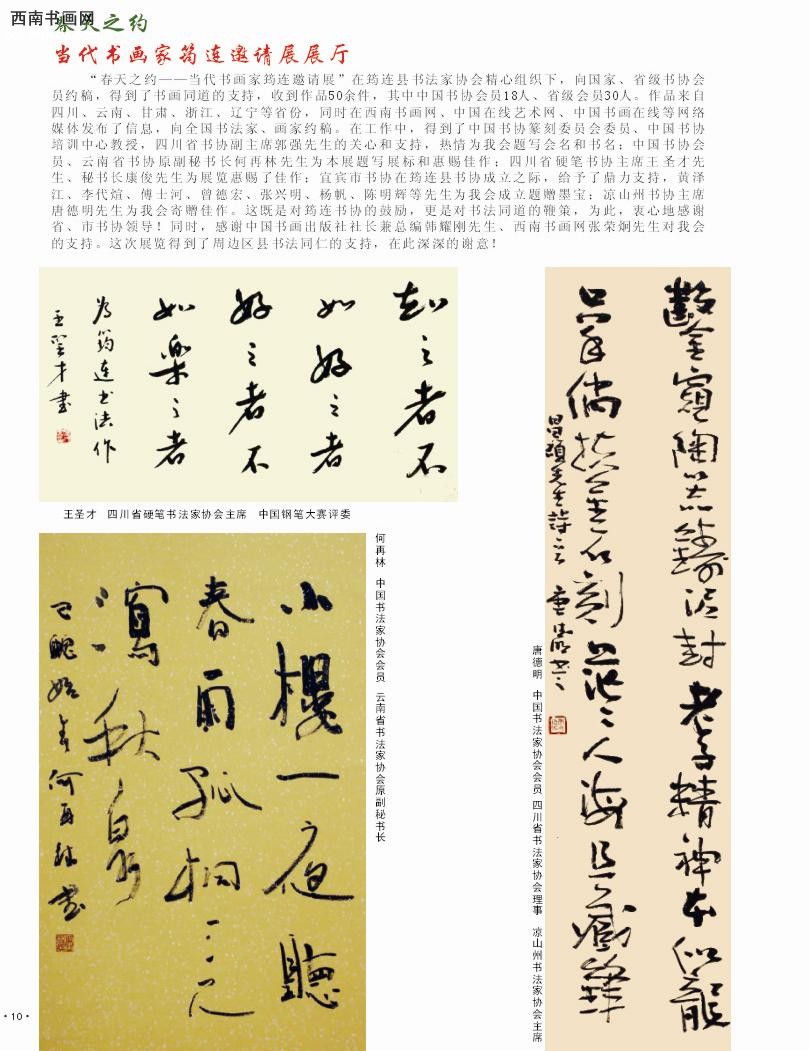 西南书画网
春天之约
当代书画家筠连邀请展展厅
“春天之约——当代书画家筠连邀请展”在筠连县书法家协会精心组织下，向国家、省级书协会
员约稿，得到了书画同道的支持，收到作品50余件，其中中国书协会员18人、省级会员30人。作品来自
四川、云南、甘肃、浙江、辽宁等省份，同时在西南书画网、中国在线艺术网、中国书画在线等网络
媒体发布了信息，向全国书法家、画家约稿。在工作中，得到了中国书协篆刻委员会委员、中国书协
培训中心教授，四川省书协副主席郭强先生的关心和支持，热情为我会题写会名和书名；中国书协会
员、云南省书协原副秘书长何再林先生为本展题写展标和惠赐佳作；四川省硬笔书协主席王圣才先
生、秘书长康俊先生为展览惠赐了佳作；宜宾市书协在筠连县书协成立之际，给予了鼎力支持，黄泽
江、李代煊、傅士河、曾德宏、张兴明、杨帆、陈明辉等先生为我会成立题赠墨宝；凉山州书协主席
唐德明先生为我会寄赠佳作。这既是对筠连书协的鼓励，更是对书法同道的鞭策，为此，衷心地感谢
省、市书协领导！同时，感谢中国书画出版社社长兼总编韩耀刚先生、西南书画网张荣炯先生对我会
的支持。这次展览得到了周边区县书法同仁的支持，在此深深的谢意！
知之者不
如好之者
好之者不
如樂之者
为筠连书法作
王圣才书
王圣才 四川省硬笔书法家协会主席 中国钢笔大赛评委
小樓一夜聽
春雨孤桐三尺
瀉秋泉
何再林书
何再林 中国书法家协会会员 云南省书法家协会原副秘书长
老去精神本似龍
人海且藏鋒
唐德明 中国书法家协会会员 四川省书法家协会理事 凉山州书法家协会主席
·10·